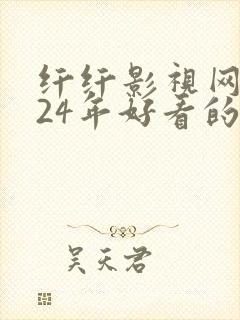 纤纤影视网
24年好看的
吴天君